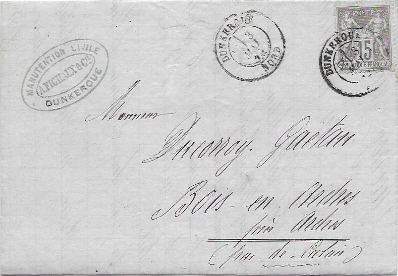 MANUTENTION CIVILE
DUNKERQUE
DUNKERQUE
NORD
DUNKERQUE
15
Monsieur
Ducorroy, Gaëtan
Bois-en-Ardres
près Ardres
(Pas-de-Calais)